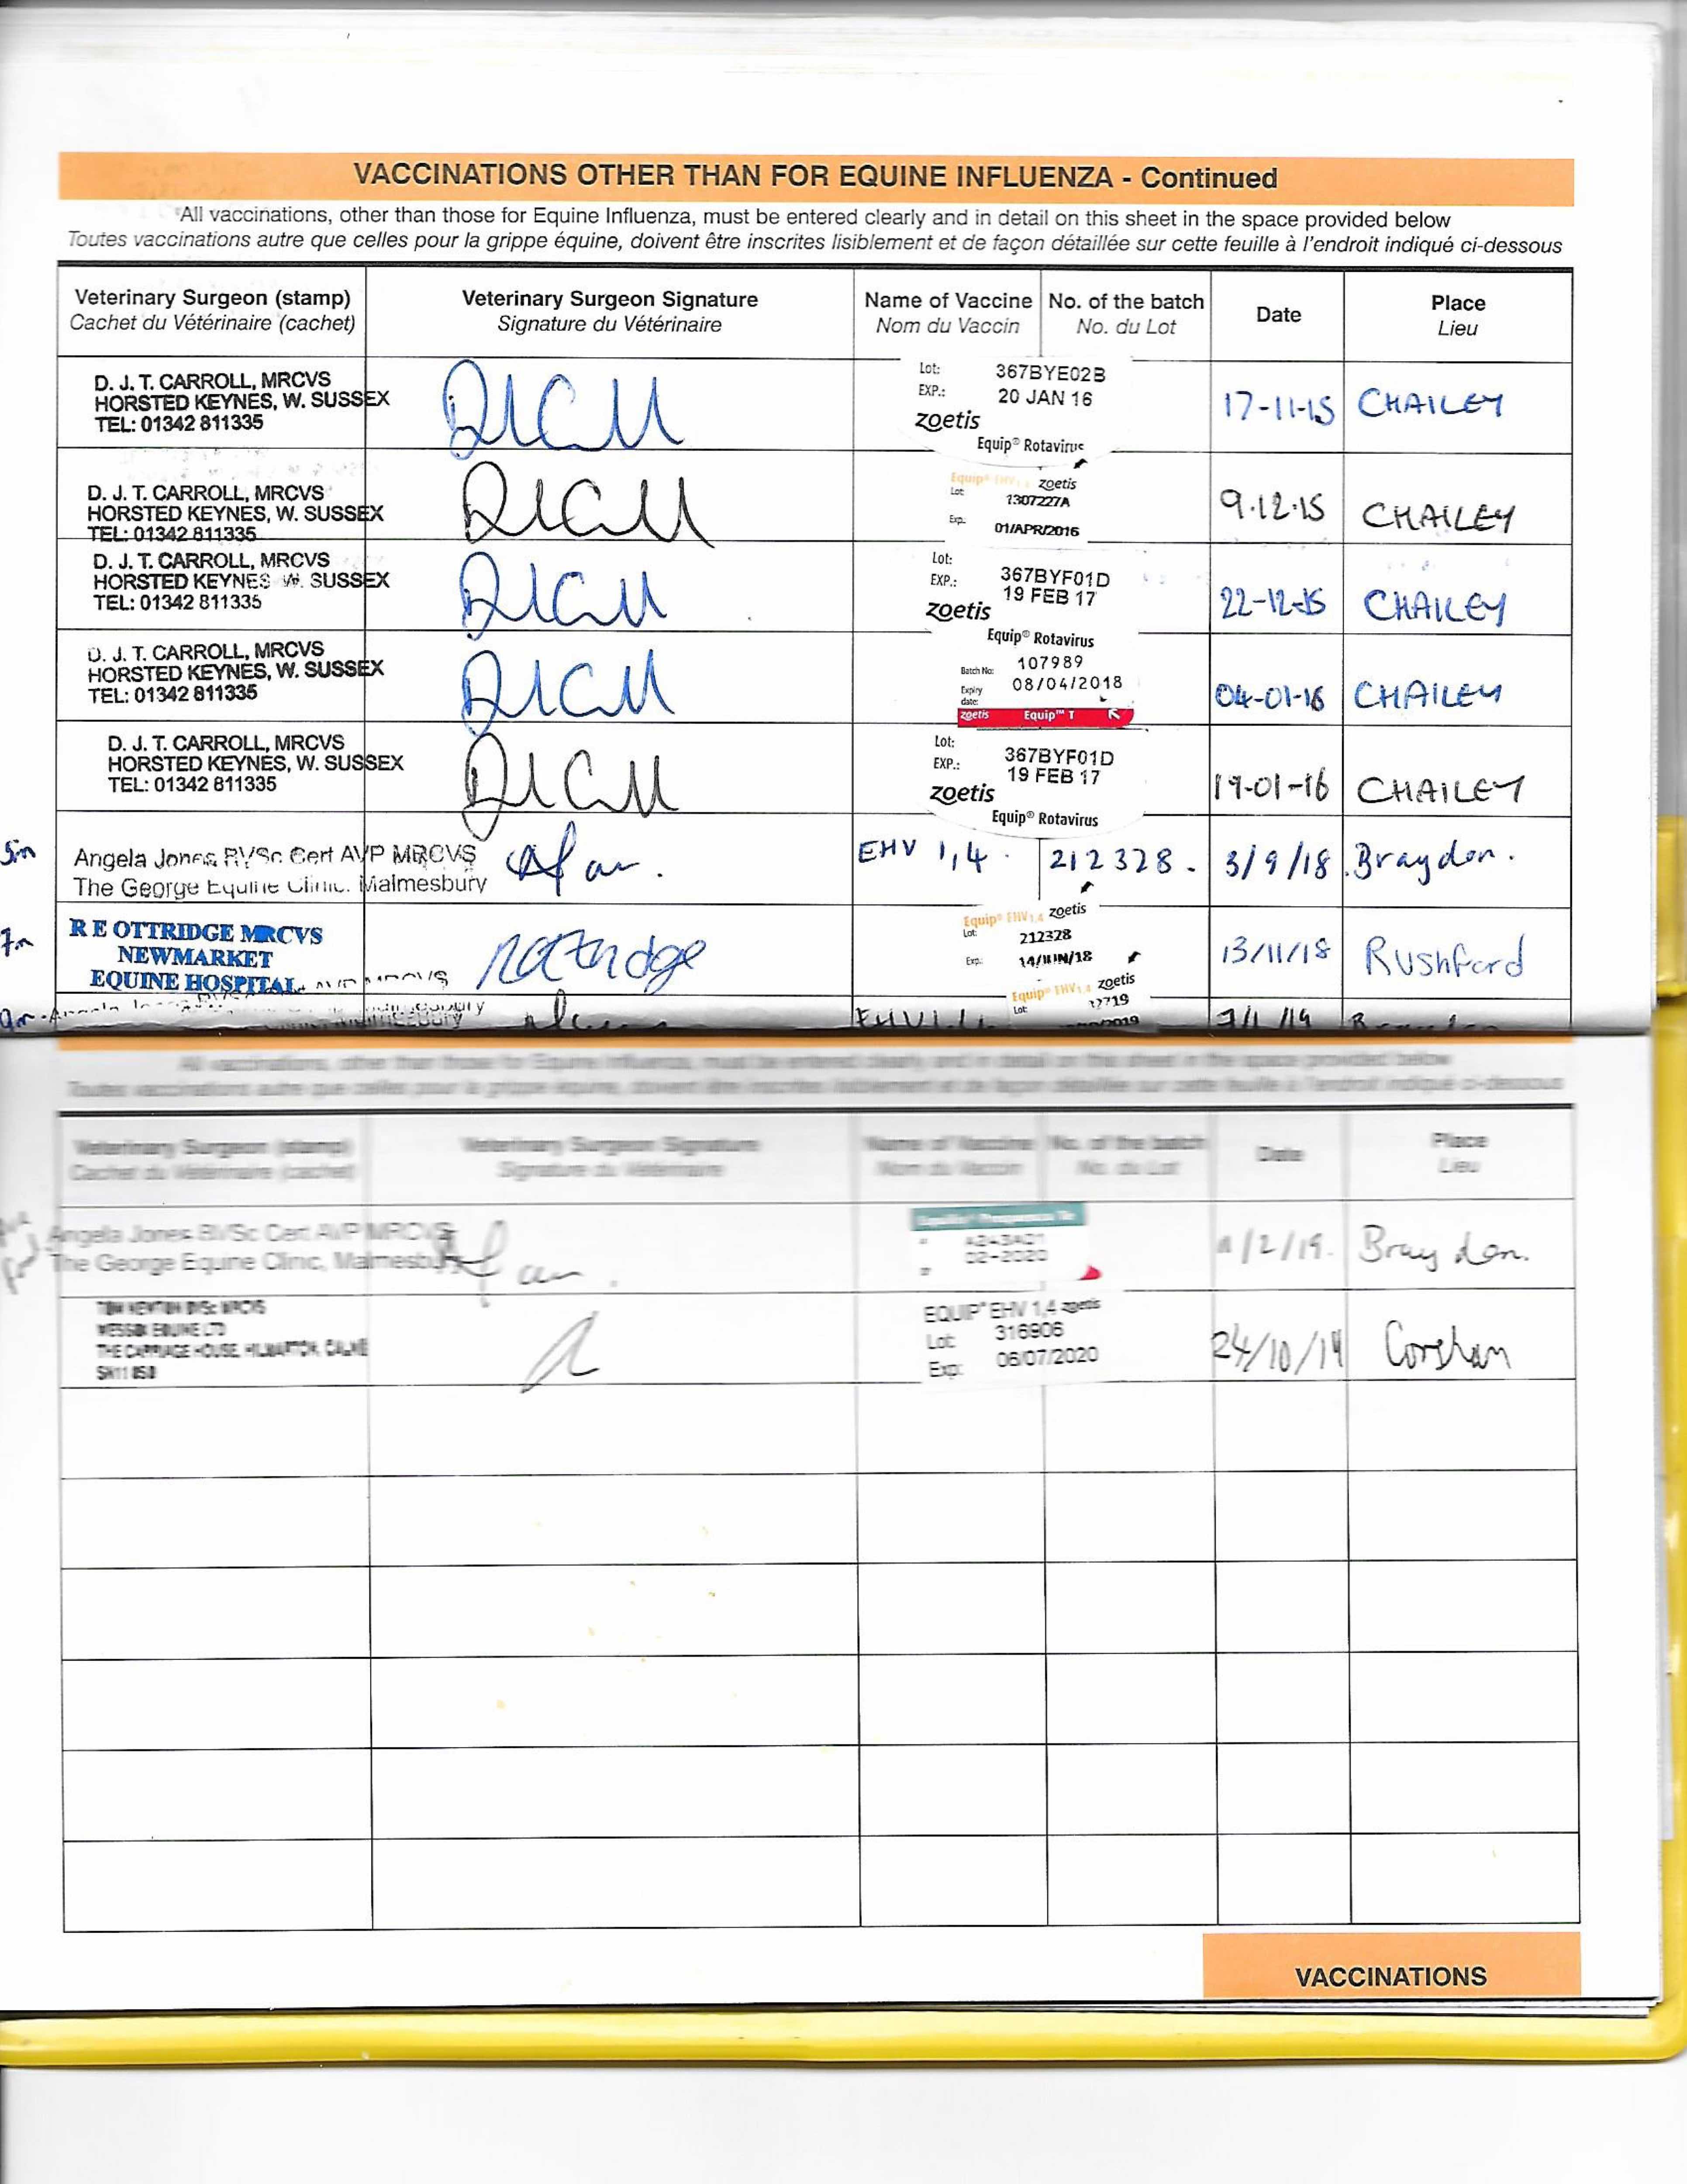 VACCINATIONS OTHER THAN FOR EQUINE INFLUENZA - Continued
All vaccinations, other than those for Equine Influenza, must be entered clearly and in detail on this sheet in the space provided below
Toutes vaccinations autre que celles pour la grippe équine, doivent être inscrites lisiblement et de façon détaillée sur cette feuille à l'endroit indiqué ci-dessous
Veterinary Surgeon (stamp) Veterinary Surgeon Signature Name of Vaccine No. of the batch Date Place
Cachet du Vétérinaire (cachet) Signature du Vétérinaire Nom du Vaccin No. du Lot Lieu
D. J. T. CARROLL, MRCVS
HORSTED KEYNES, W. SUSSEX
TEL: 01342 811335
Lot: 367BYE02B
EXP.: 20 JAN 16
zoetis
Equip® Rotavirus
17-11-15 CHAILEY
D. J. T. CARROLL, MRCVS
HORSTED KEYNES, W. SUSSEX
TEL: 01342 811335
Equip® EHV1,4 zoetis
Lot: 1307227A
Exp.: 01/APR/2016
9.12.15 CHAILEY
D. J. T. CARROLL, MRCVS
HORSTED KEYNES W. SUSSEX
TEL: 01342 811335
Lot: 367BYF01D
EXP.: 19 FEB 17
zoetis
Equip® Rotavirus
22-12-15 CHAILEY
D. J. T. CARROLL, MRCVS
HORSTED KEYNES, W. SUSSEX
TEL: 01342 811335
Batch No: 107989
Expiry date: 08/04/2018
zoetis Equip™ T
04-01-16 CHAILEY
D. J. T. CARROLL, MRCVS
HORSTED KEYNES, W. SUSSEX
TEL: 01342 811335
Lot: 367BYF01D
EXP.: 19 FEB 17
zoetis
Equip® Rotavirus
19-01-16 CHAILEY
5m
Angela Jones BVSc Cert AVP MRCVS
The George Equine Clinic. Malmesbury
EHV 1,4. 212328. 3/9/18. Braydon.
7m
R E OTTRIDGE MRCVS
NEWMARKET
EQUINE HOSPITAL
Equip® EHV1,4 zoetis
Lot: 212328
Exp.: 14/JUN/18
13/11/18 Rushford
9m
Equip® EHV1,4 zoetis
Lot:
All vaccinations, other than those for Equine Influenza, must be entered clearly and in detail on this sheet in the space provided below
Toutes vaccinations autre que celles pour la grippe équine, doivent être inscrites lisiblement et de façon détaillée sur cette feuille à l'endroit indiqué ci-dessous
Veterinary Surgeon (stamp) Veterinary Surgeon Signature Name of Vaccine No. of the batch Date Place
Cachet du Vétérinaire (cachet) Signature du Vétérinaire Nom du Vaccin No. du Lot Lieu
Angela Jones BVSc Cert AVP MRCVS
The George Equine Clinic, Malmesbury
02-2020
Braydon.
WESSEX EQUINE LTD
THE CARRIAGE HOUSE, HILMARTON, CALNE
EQUIP® EHV 1,4 zoetis
Lot: 316906
Exp: 06/07/2020
24/10/19 Corsham
VACCINATIONS